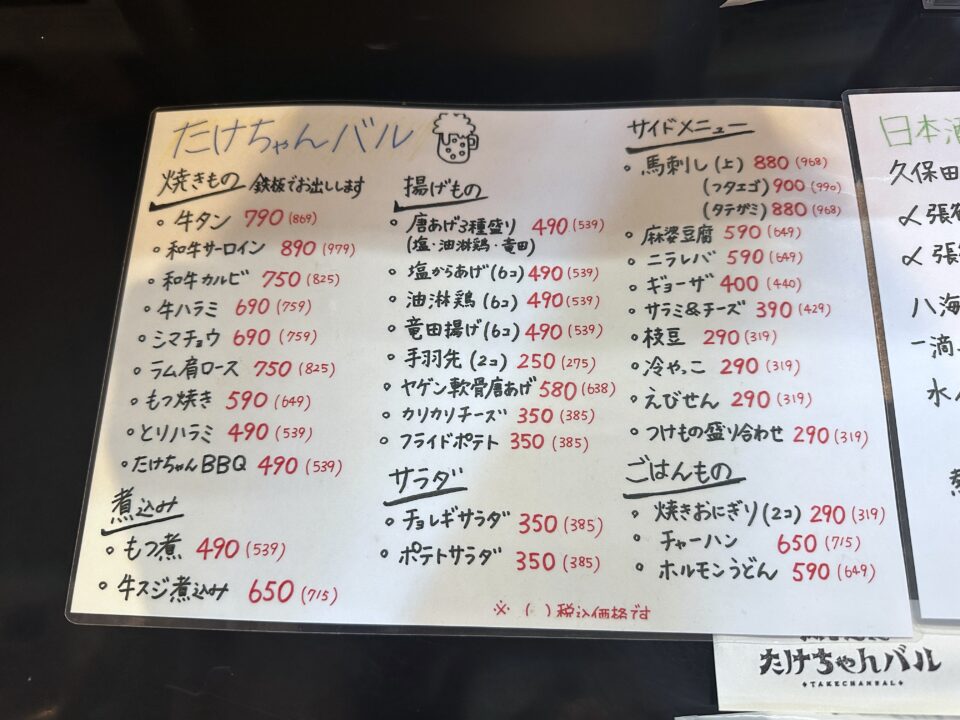 たけちゃんバル
焼きもの 鉄板でお出しします
○ 牛タン 790 (869)
○ 和牛サーロイン 890 (979)
○ 和牛カルビ 750 (825)
○ 牛ハラミ 690 (759)
○ シマチョウ 690 (759)
○ ラム肩ロース 750 (825)
○ もつ焼き 590 (649)
○ とりハラミ 490 (539)
○ たけちゃんBBQ 490 (539)
煮込み
○ もつ煮 490 (539)
○ 牛スジ煮込み 650 (715)
揚げもの
○ 唐あげ3種盛り 490 (539)
(塩・油淋鶏・竜田)
○ 塩からあげ(6コ) 490 (539)
○ 油淋鶏(6コ) 490 (539)
○ 竜田揚げ(6コ) 490 (539)
○ 手羽先(2コ) 250 (275)
○ ヤゲン軟骨唐あげ 580 (638)
○ カリカリチーズ 350 (385)
○ フライドポテト 350 (385)
サラダ
○ チョレギサラダ 350 (385)
○ ポテトサラダ 350 (385)
サイドメニュー
○ 馬刺し(上) 880 (968)
(フタエゴ) 900 (990)
(タテガミ) 880 (968)
○ 麻婆豆腐 590 (649)
○ ニラレバ 590 (649)
○ ギョーザ 400 (440)
○ サラミ&チーズ 390 (429)
○ 枝豆 290 (319)
○ 冷やっこ 290 (319)
○ えびせん 290 (319)
○ つけもの盛り合わせ 290 (319)
ごはんもの
○ 焼きおにぎり(2コ) 290 (319)
○ チャーハン 650 (715)
○ ホルモンうどん 590 (649)
※ ( )税込価格です
日本酒
久保田
〆張
〆張
八海
一滴
水
たけちゃんバル
TAKECHANBAL